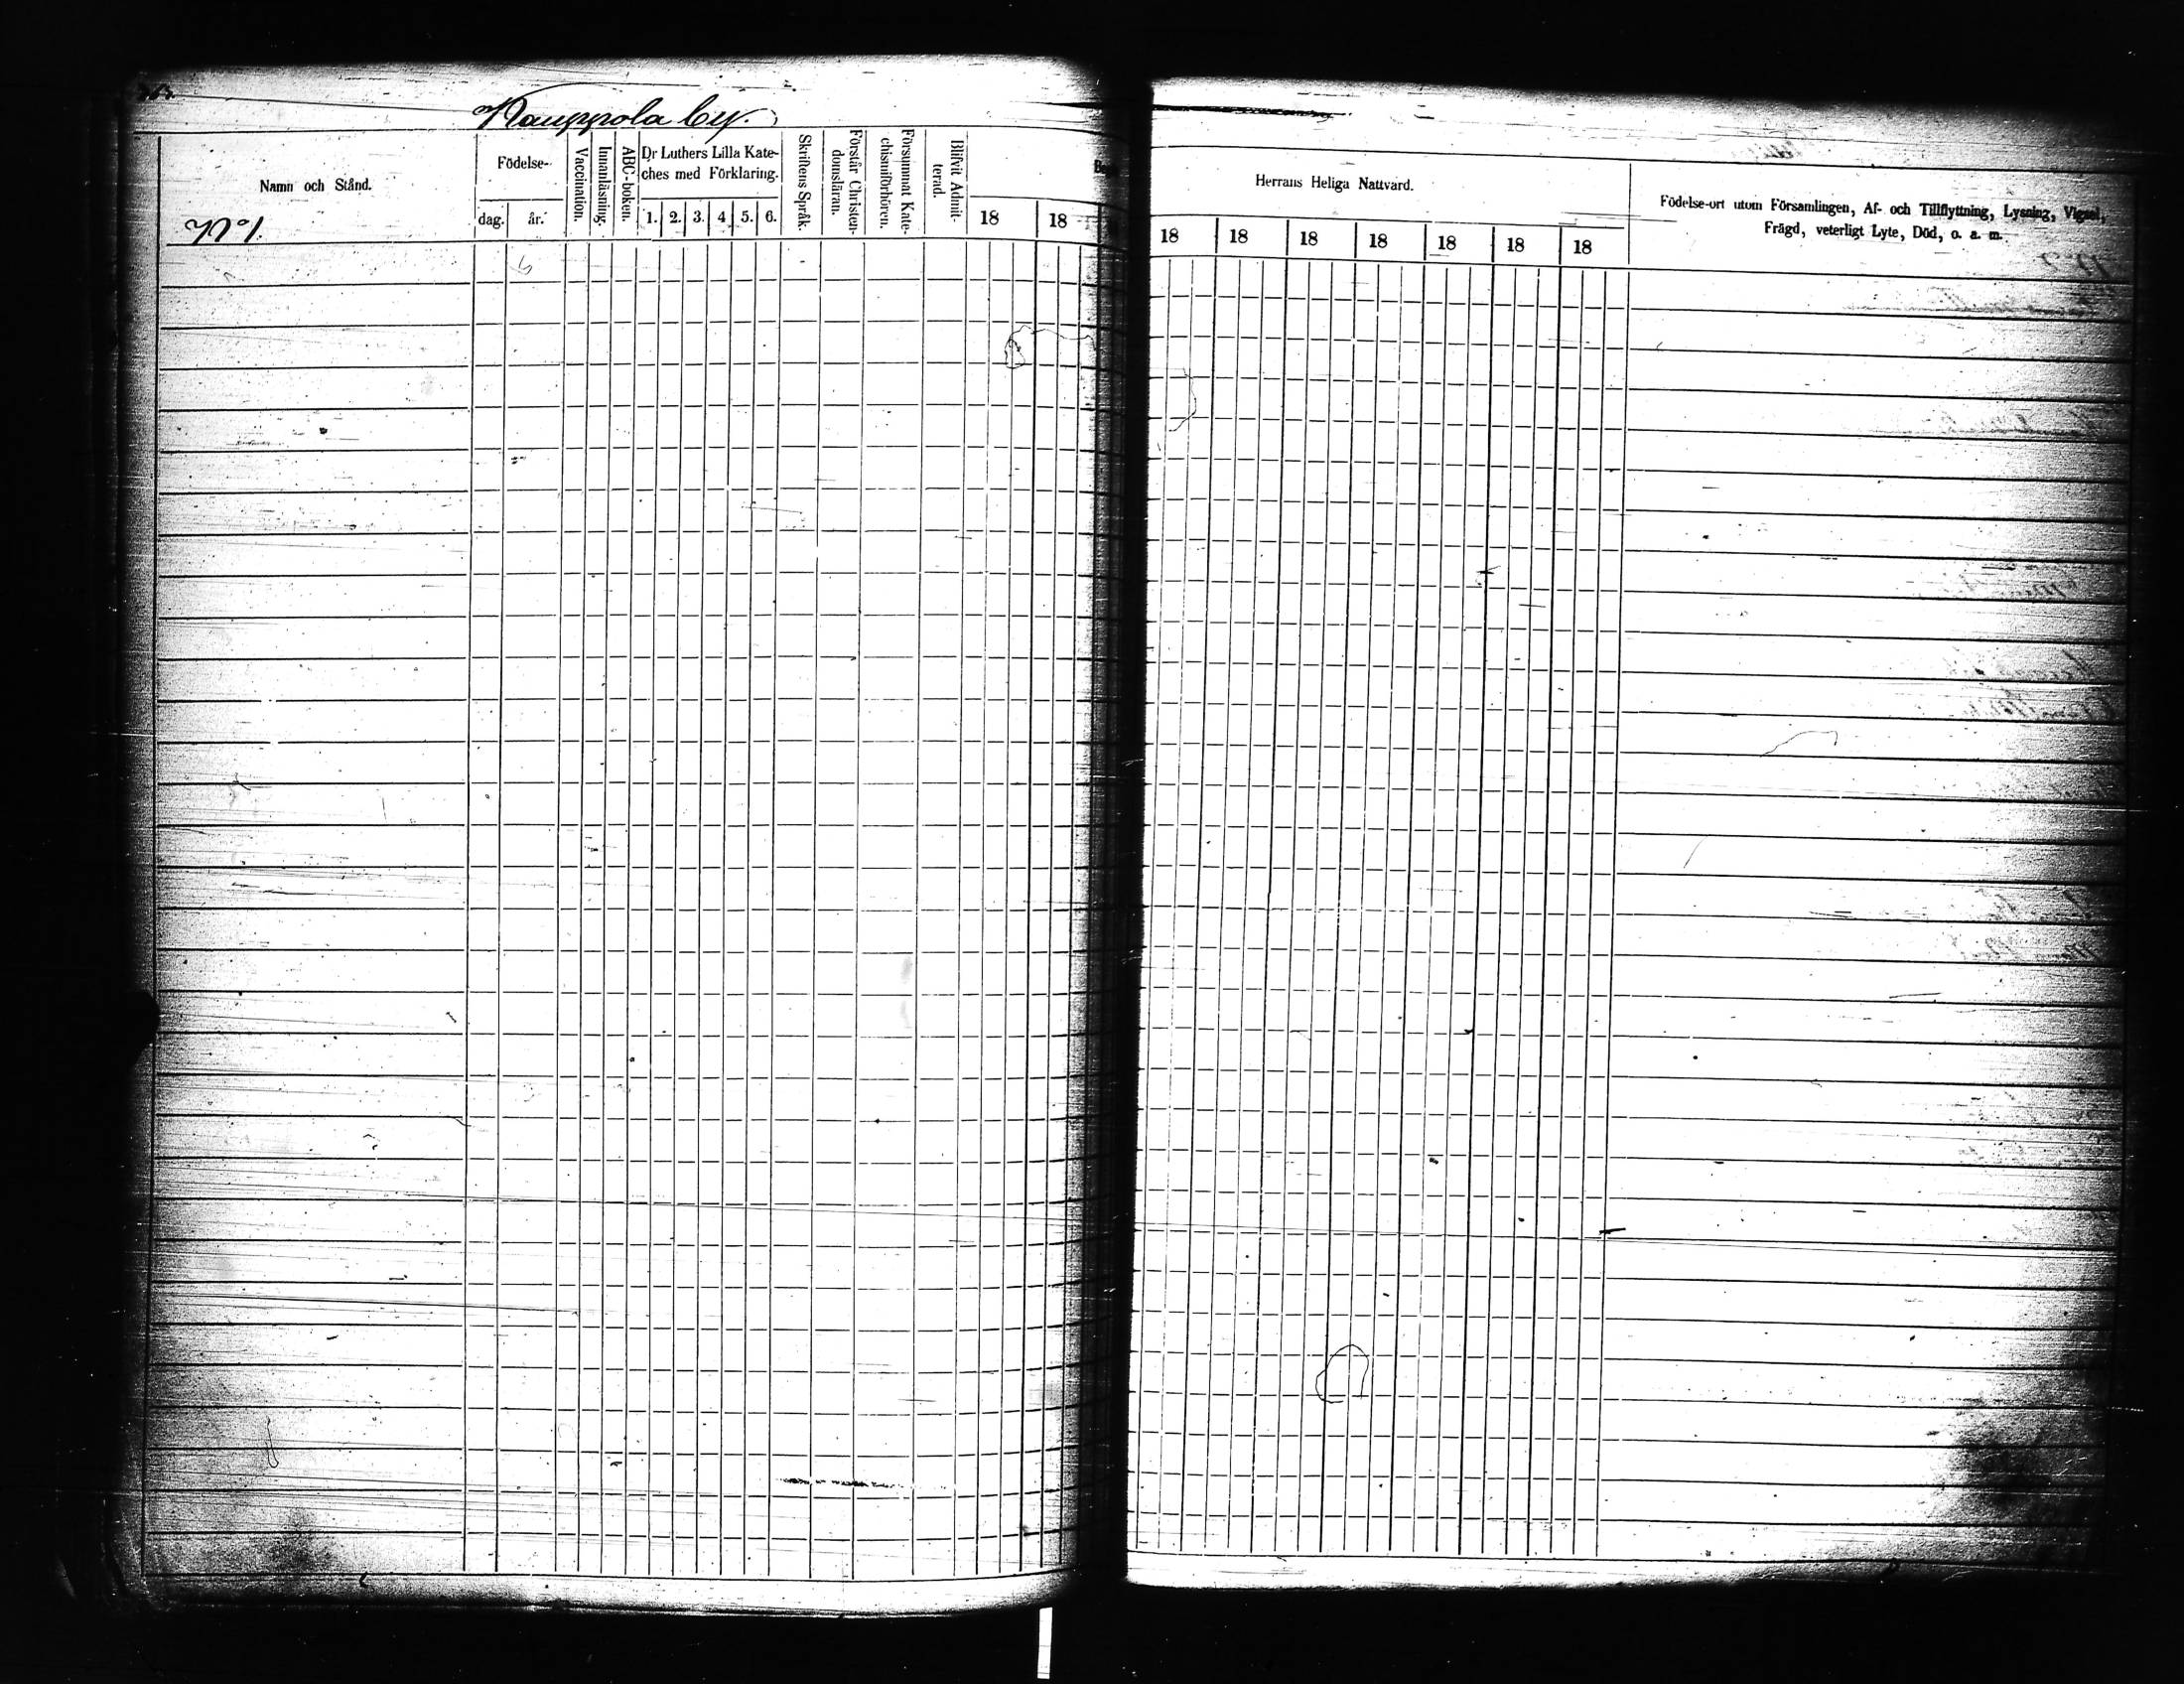 Kauppola by.
Namn och Stånd.
Födelse-
dag. år.
Vaccination.
Innanläsning.
ABC-boken.
Dr Luthers Lilla Kate-
ches med Förklaring.
1. 2. 3. 4 5. 6.
Skriftens Språk.
Förstår Christen-
domsläran.
Försummat Kate-
chismiförhören.
Blifvit Admit-
terad.
18 18
No 1.
Herrans Heliga Nattvard.
18 18 18 18 18 18 18
Födelse-ort utom Församlingen, Af- och Tillflyttning, Lysning, Vigsel,
Frägd, veterligt Lyte, Död, o. a. m.